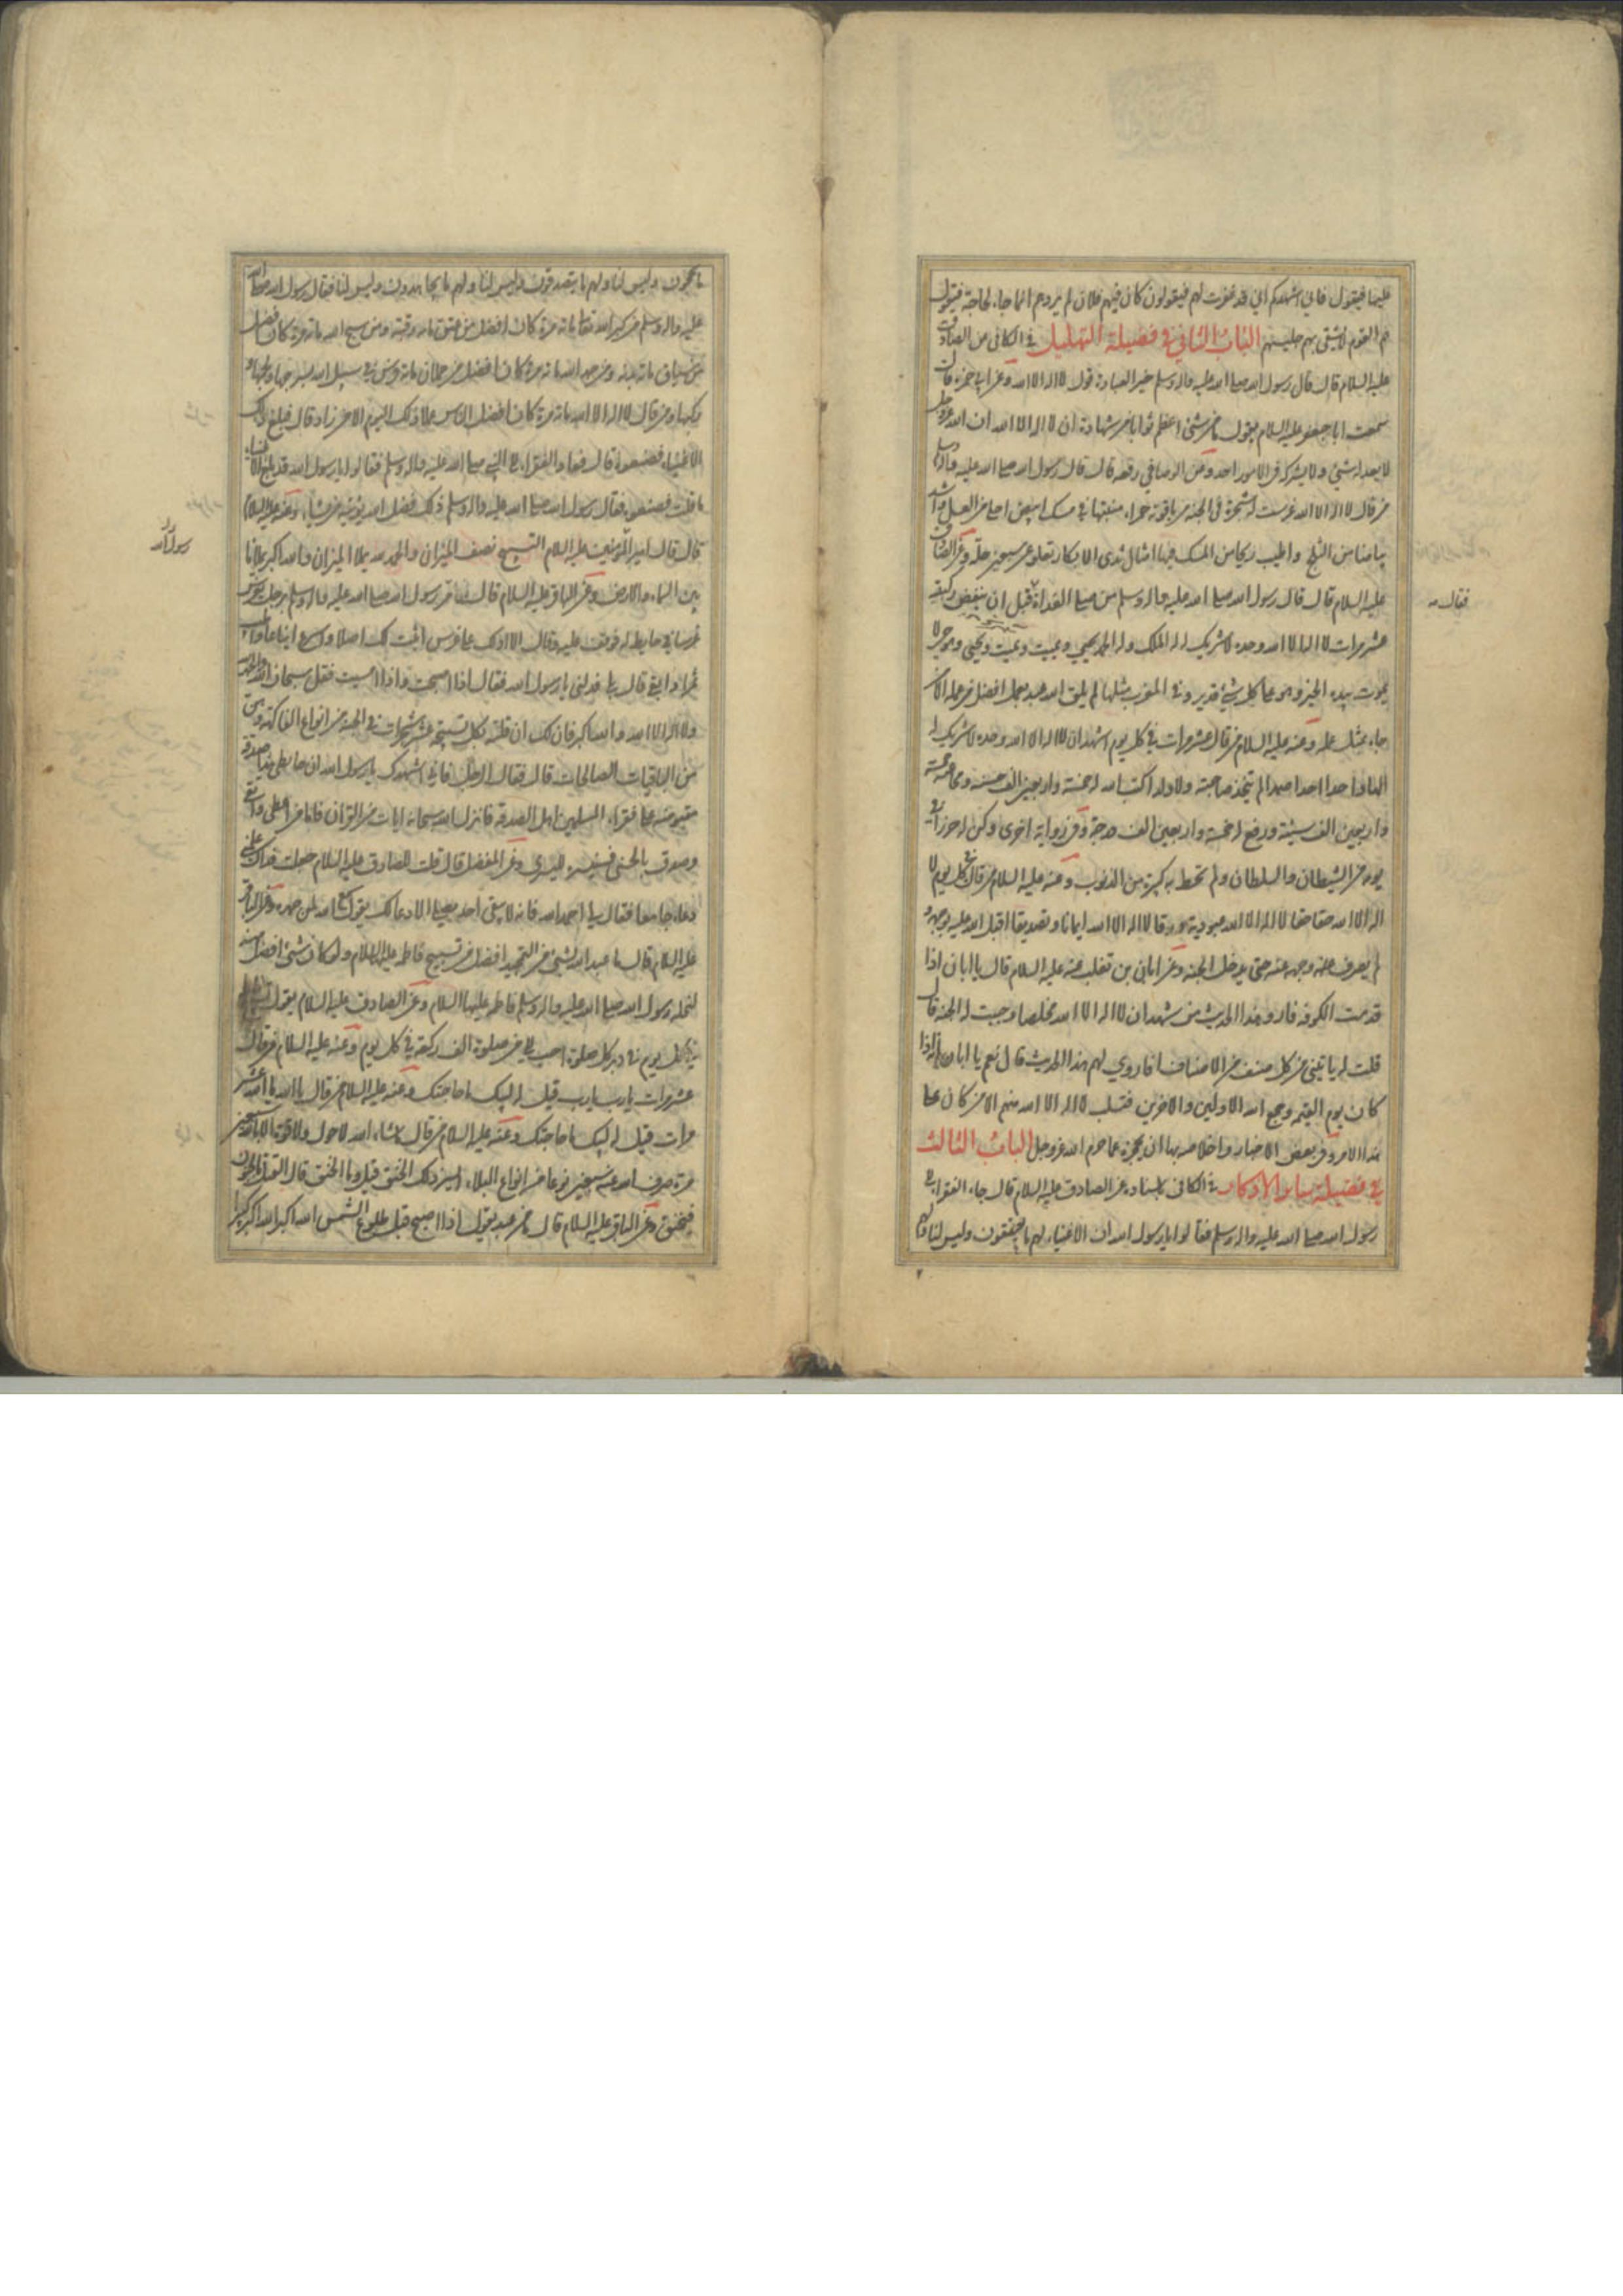 علينا فيقول فاني اشهدكم اني قد غفرت لهم فيقولون كان فيهم فلان لم يردهم انما جاء لحاجة فيقول
هم القوم لا يشقى بهم جليسهم الباب الثاني في فضيلة التهليل في الكافي عن الصادق
عليه السلام قال قال رسول الله صلى الله عليه واله وسلم خير العبادة قول لا اله الا الله وعن ابي حمزة قال
سمعت ابا جعفر عليه السلام يقول ما من شئ اعظم ثوابا من شهادة ان لا اله الا الله ان الله عزوجل
لا يعدله شئ ولا يشركه في الامور احد وعن الوصافي رفعه قال قال رسول الله صلى الله عليه واله وسلم
من قال لا اله الا الله غرست له شجرة في الجنة من ياقوتة حمراء منبتها في مسك ابيض احلى من العسل واشد
بياضا من الثلج واطيب ريحا من المسك فيها امثال ثدى الابكار تعلو عن سبعين حلة وعن الصادق
عليه السلام قال قال رسول الله صلى الله عليه واله وسلم من صلى الغداة قبل ان ينفض ركبتيه
عشر مرات لا اله الا الله وحده لا شريك له له الملك وله الحمد يحيي ويميت ويميت ويحيي وهو حي لا
يموت بيده الخير وهو على كل شئ قدير وفي المغرب مثلها لم يلق الله عبد بعمل افضل من عمله الا من
جاء بمثل عمله وعنه عليه السلام من قال عشر مرات في كل يوم اشهد ان لا اله الا الله وحده لا شريك له
الها واحدا احدا صمدا لم يتخذ صاحبة ولا ولدا كتب الله له خمسة واربعين الف حسنة ومحا عنه خمسة
واربعين الف سيئة ورفع له خمسة واربعين الف درجة وفي رواية اخرى وكن له حرزا في
يومه من الشيطان والسلطان ولم تحط به كبيرة من الذنوب وعنه عليه السلام من قال في كل يوم لا
اله الا الله حقا حقا لا اله الا الله عبودية ورقا لا اله الا الله ايمانا وتصديقا اقبل الله عليه بوجهه و
لم يصرف عنه وجهه حتى يدخل الجنة وعن ابان بن تغلب عنه عليه السلام قال يا ابان اذا
قدمت الكوفة فارو هذا الحديث من شهد ان لا اله الا الله مخلصا وجبت له الجنة قال
قلت له يأتيني من كل صنف من الاصناف افاروي لهم هذا الحديث قال نعم يا ابان انه اذا
كان يوم القيمة وجمع الله الاولين والاخرين فتسلب لا اله الا الله منهم الا من كان على
هذا الامر وفي بعض الاخبار واخلاصه بها ان يحجزه عما حرم الله عزوجل الباب الثالث
في فضيلة سائر الاذكار في الكافي باسناده عن الصادق عليه السلام قال جاء الفقراء الى
رسول الله صلى الله عليه واله وسلم فقالوا يا رسول الله ان الاغنياء لهم ما يعتقون وليس لنا ولهم
فقال
ما يحجون وليس لنا ولهم ما يتصدقون وليس لنا ولهم ما يجاهدون وليس لنا فقال رسول الله صلى الله
عليه واله وسلم من كبر الله تعالى مائة مرة كان افضل من عتق مائة رقبة ومن سبح الله مائة مرة كان افضل
من سياق مائة بدنة ومن حمد الله مائة مرة كان افضل من حملان مائة فرس في سبيل الله بسرجها ولجمها و
ركبها ومن قال لا اله الا الله مائة مرة كان افضل الناس عملا ذلك اليوم الا من زاد قال فبلغ ذلك
الاغنياء فصنعوه قال فعاد الفقراء الى النبي صلى الله عليه واله وسلم فقالوا يا رسول الله قد بلغ الاغنياء
ما قلت فصنعوه فقال رسول الله صلى الله عليه واله وسلم ذلك فضل الله يؤتيه من يشاء وعنه عليه السلام
قال قال امير المؤمنين عليه السلام التسبيح نصف الميزان والحمد لله يملا الميزان والله اكبر يملا ما
بين السماء والارض وعن الباقر عليه السلام قال مر رسول الله صلى الله عليه واله وسلم برجل يغرس
غرسا في حايط له فوقف عليه وقال الا ادلك على غرس اثبت اصلا واسرع ايناعا واطيب
ثمرا وابقى قال بلى فدلني يا رسول الله فقال اذا اصبحت واذا امسيت فقل سبحان الله والحمد لله
ولا اله الا الله والله اكبر فان لك ان قلته بكل تسبيحة عشر شجرات في الجنة من انواع الفاكهة وهن
من الباقيات الصالحات قال فقال الرجل فاني اشهدك يا رسول الله ان حايطي هذا صدقة
مقبوضة على فقراء المسلمين اهل الصدقة فانزل الله سبحانه ايات من القران فاما من اعطى واتقى
وصدق بالحسنى فسنيسره لليسرى وعن المفضل قال قلت للصادق عليه السلام جعلت فداك علمني
دعاء جامعا فقال لي احمد الله فانه لا يبقى احد يصلي الا دعا لك يقول سمع الله لمن حمده وعن الباقر
عليه السلام قال ما عبد الله بشئ من التحميد افضل من تسبيح فاطمة عليها السلام ولو كان شئ افضل منه
لنحله رسول الله صلى الله عليه واله وسلم فاطمة عليها السلام وعن الصادق عليه السلام يقول تسبيح فاطمة
في كل يوم في دبر كل صلوة احب الي من صلوة الف ركعة في كل يوم وعنه عليه السلام من قال
عشر مرات يا رب يا رب قيل له لبيك ما حاجتك وعنه عليه السلام من قال يا الله يا الله عشر
مرات قيل له لبيك ما حاجتك وعنه عليه السلام من قال ما شاء الله لا حول ولا قوة الا بالله سبعين
مرة صرف الله عنه سبعين نوعا من انواع البلاء ايسر ذلك الخنق قيل وما الخنق قال لا يعتل بالجنون
فيخنق وعن الباقر عليه السلام قال ما من عبد يقول اذا اصبح قبل طلوع الشمس الله اكبر الله اكبر كبيرا
رسول الله